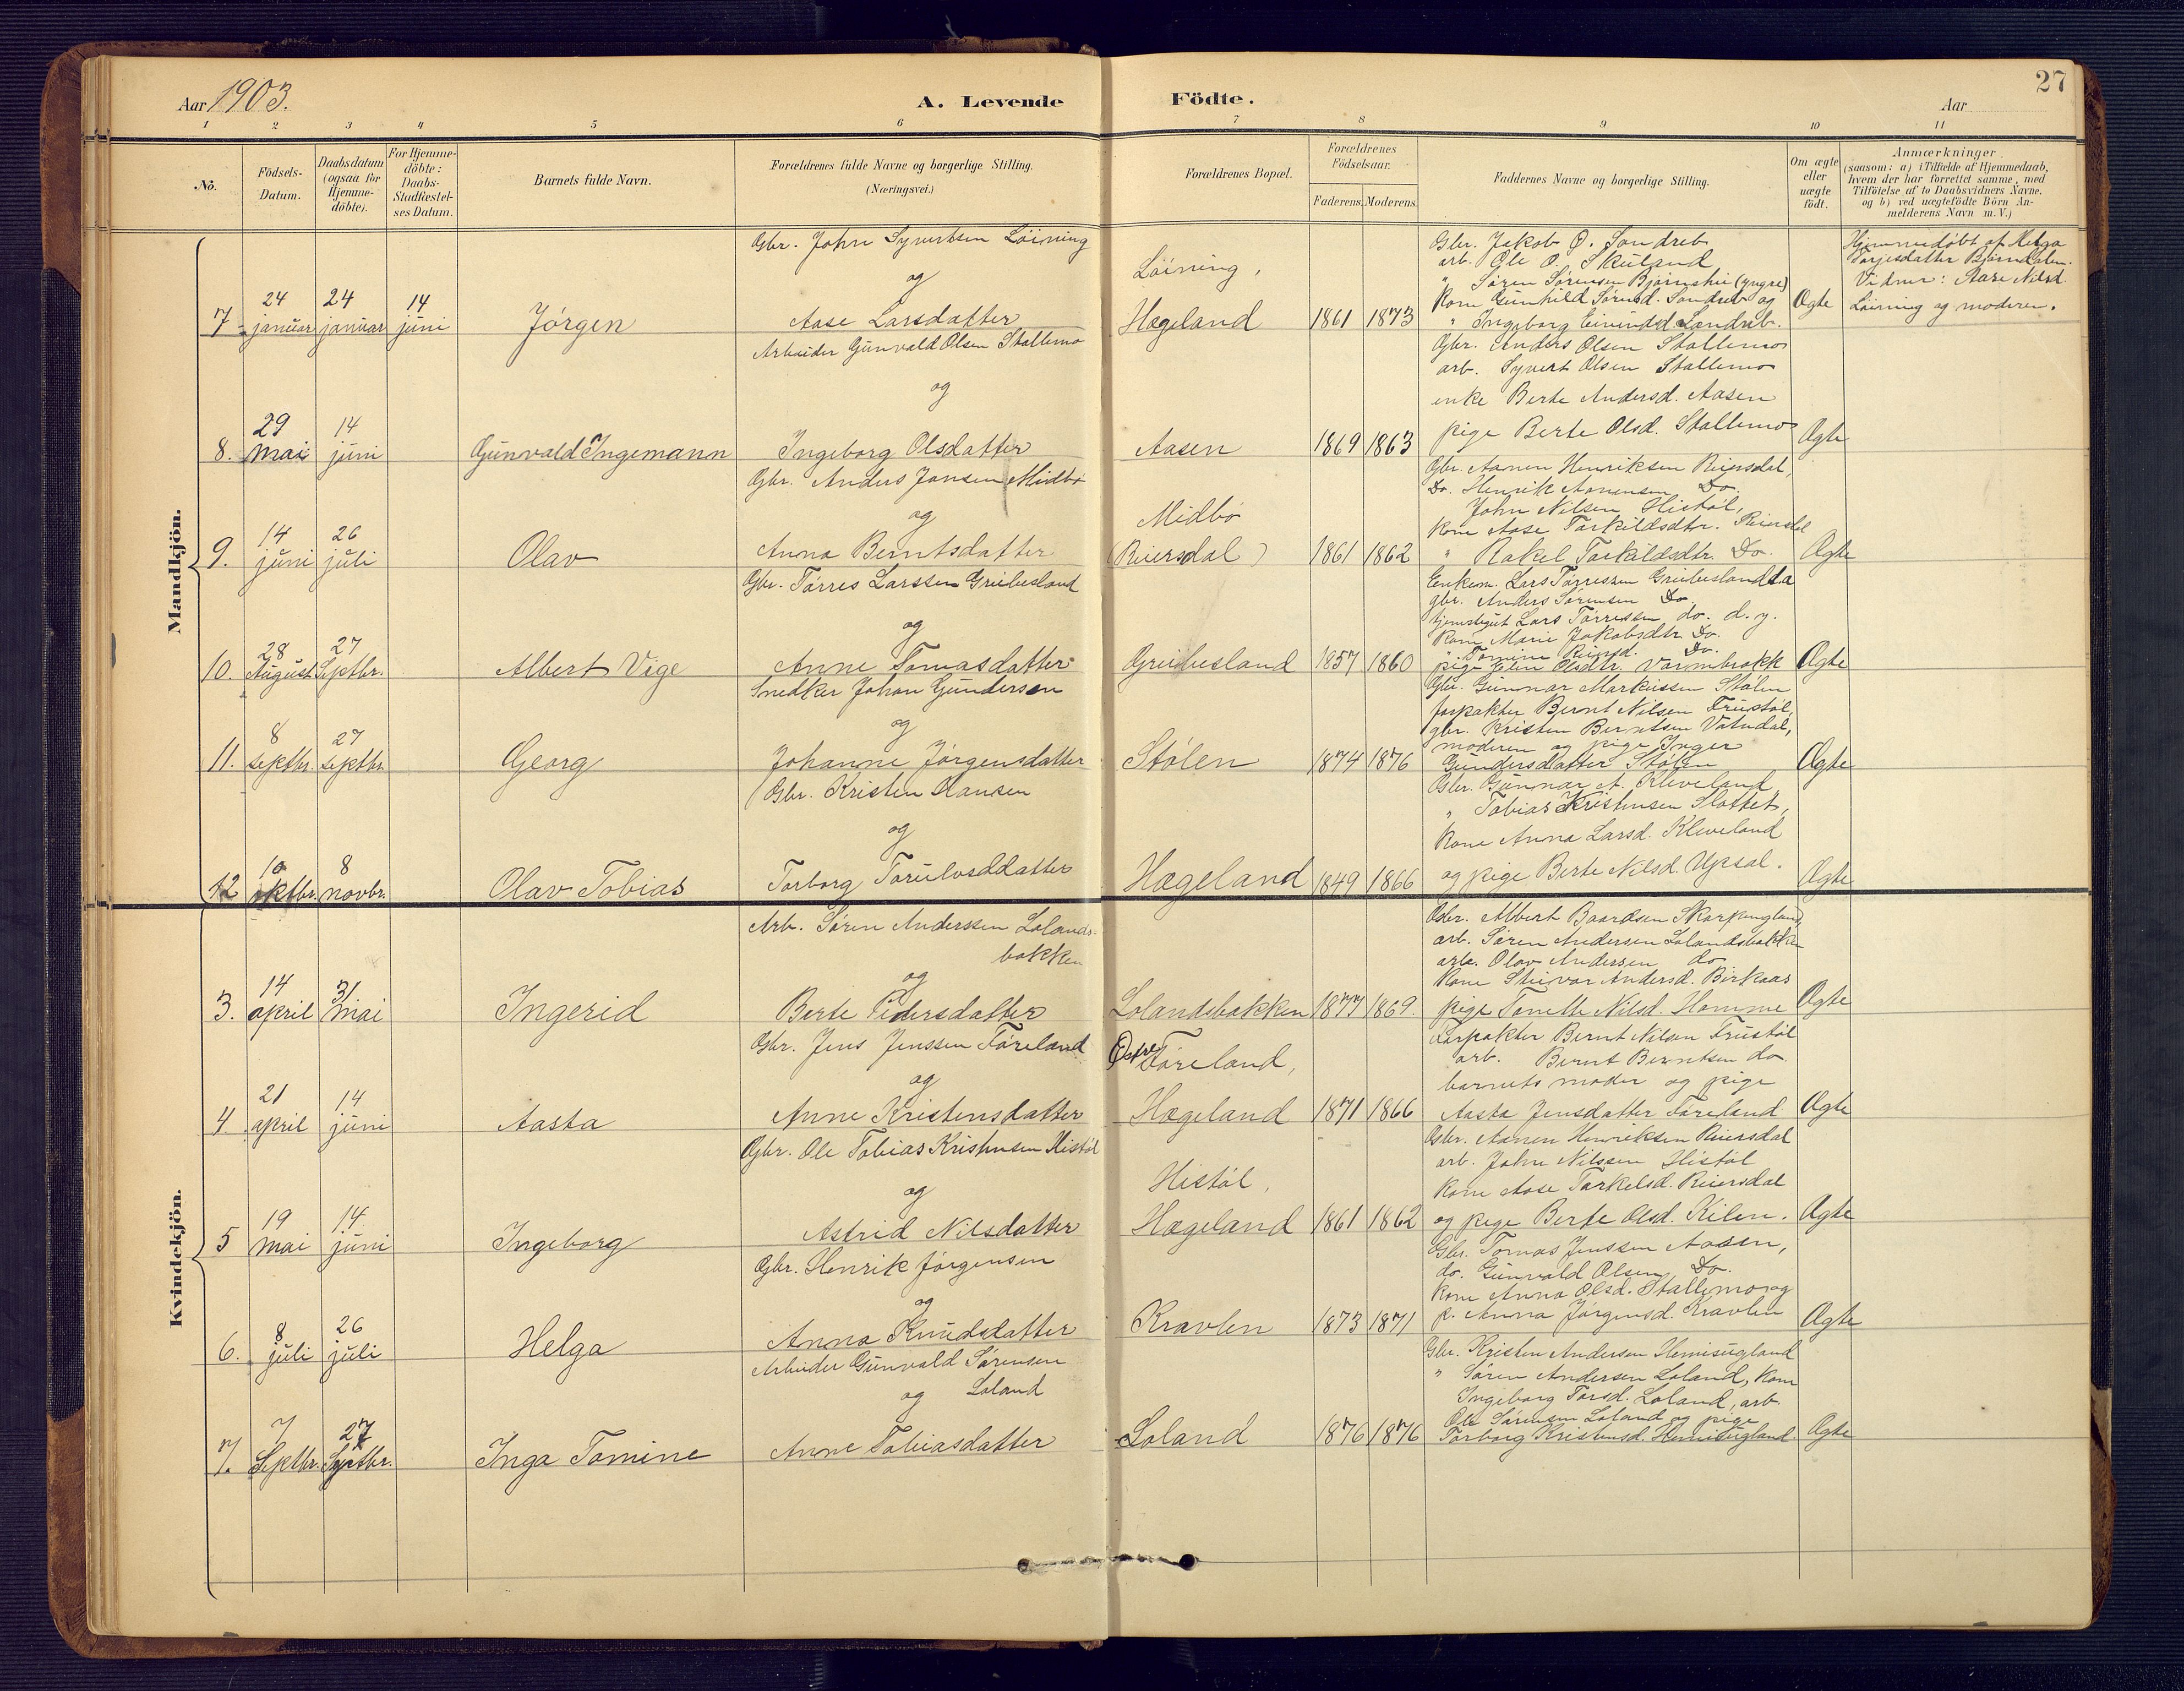 27
Aar 1903.
A. Levende Födte.
Aar
1 2 3 4 5 6 7 8 9 10 11
No.
Födsels-Datum.
Daabsdatum (ogsaa for Hjemme-döbte).
For Hjemme-döbte: Daabs-Stadfæstel-ses Datum.
Barnets fulde Navn.
Forældrenes fulde Navne og borgerlige Stilling. (Næringsvei.)
Forældrenes Bopæl.
Forældrenes Födselsaar.
Faderens. Moderens.
Faddernes Navne og borgerlige Stilling.
Om ægte eller uægte födt.
Anmærkninger (saasom: a) i Tilfælde af Hjemmedaab, hvem der har forrettet samme, med Tilföielse af to Daabsvidners Navne. og b) ved uægtefödte Börn An-melderens Navn m. V.)
Mandkjön.
7 24 januar 24 januar 14 juni
Jörgen
Gbr. John Syvertsen Löining
og
Aase Larsdatter
Löining,
Hægeland
1861 1873
Gbr. Jakob O. Sandreb
arb. Ole O. Skuland
" Sören Sörensen Bjørnshei (yngre)
Kone Gunhild Sörensd. Sandreb og
" Ingeborg Eivindsd. Sandreb.
Ægte
Hjemmedøbt af Helga
Torjesdatter Bjørndalen.
Vidner: Aase Nilsd.
Löining og moderen.
8. 29 Mai 14 juni
Gunvald Ingemann
Arbeider Gunvald Olsen Stallemo
og
Ingeborg Olsdatter
Aasen
1869 1863
Gbr. Anders Olsen Stallemo
arb. Syvert Olsen Stallemo
enke Berte Andersd. Aasen
pige Berte Olsd. Stallemo
Ægte
9. 14 juni 26 juli
Olav
Gbr. Anders Jansen Midbö
og
Anna Berntsdatter
Midbö
(Reiersdal)
1861 1862
Gbr. Aanen Henriksen Reiersdal,
Do. Henrik Aanensen Do.
John Nilsen Histöl,
Kone Aase Torkildsdtr. Reiersdal
" Rakel Torkildsdtr. Do.
Ægte
10. 28 August 27 Septbr.
Albert Vige
Gbr. Törres Larssen Greibesland
og
Anne Tomasdatter
Greibesland
1857 1860
Enkem. Lars Törressen Greibesland
gbr. Anders Sörensen Do
Lars Törressen do. d. y.
Kone Marie Jakobsdtr Do.
" Tomine Do.
pige Elin Olsdtr.
Ægte
11. 8 septbr. 27 septbr.
Georg
Snedker Johan Gundersen
og
Johanne Jörgensdatter
Stölen
1874 1876
Gbr. Gunnar Markussen Stölen
forpakter Bernt Nilsen Frustöl,
gbr. Kristen Berntsen Vatndal,
moderen og pige Inger
Gundersdatter Stölen
Ægte
12 10 oktbr. 8 novbr.
Olav Tobias
Gbr. Kristen Hansen
og
Torborg Torulvsddatter
Hægeland
1849 1866
Gbr. Gunnar A. Kleveland
" Tobias Kristensen Slottet,
Kone Anna Larsd. Kleveland
og pige Berte Nilsd. Upsal.
Ægte
Kvindekjön.
3. 14 april 31 mai
Ingerid
Arb. Sören Anderssen Lolands-
bakken
og
Berte Pedersdatter
Lolandsbakken
1877 1869.
Gbr. Albert Baardsen Skarpengland,
arb. Sören Andersen Lolandsbakken
arb. Olav Andersen do
Kone Andersd. Birkaas
pige Tonette Nilsd. Homme
Ægte
4. 21 april 14 juni
Aasta
Gbr. Jens Jenssen Föreland
og
Anne Kristensdatter
Østre Föreland,
Hægeland
1871 1866
Forpakter Bernt Nilsen Frustöl
arb. Bernt Berntsen do.
barnets moder og pige
Aasta Jensdatter Föreland
Ægte
5 19 mai 14 juni
Ingeborg
Gbr. Ole Tobias Kristensen Histöl
og
Astrid Nilsdatter
Histöl,
Hægeland
1861 1862
Gbr. Aanen Henriksen Reiersdal
arb. John Nilssen Histöl
Kone Aase Torkelsd. Reiersdal
og pige Berte Olsd. Kilen.
Ægte
6. 8 juli 26 juli
Helga
Gbr. Henrik Jörgensen
og
Anna Knudsdatter
Kravlen
1873 1871
Gbr. Tomas Jenssen Aasen,
do. Gunvald Olsen Do.
Kone Anna Olsd. Stallemo og
p. Anna Jörgensd. Kravlen
Ægte
7. 7 Septbr. 27 Septbr.
Inga Tomine
Arbeider Gunvald Sörensen
og Loland
Anne Tobiasdatter
Loland
1876 1876
Gbr. Kristen Andersen Hemisugland
" Sören Andersen Loland, Kone
Ingeborg Torsd. Loland, arb.
Ole Sörensen Loland og pige
Torborg Kristensd. Hemisugland.
Ægte